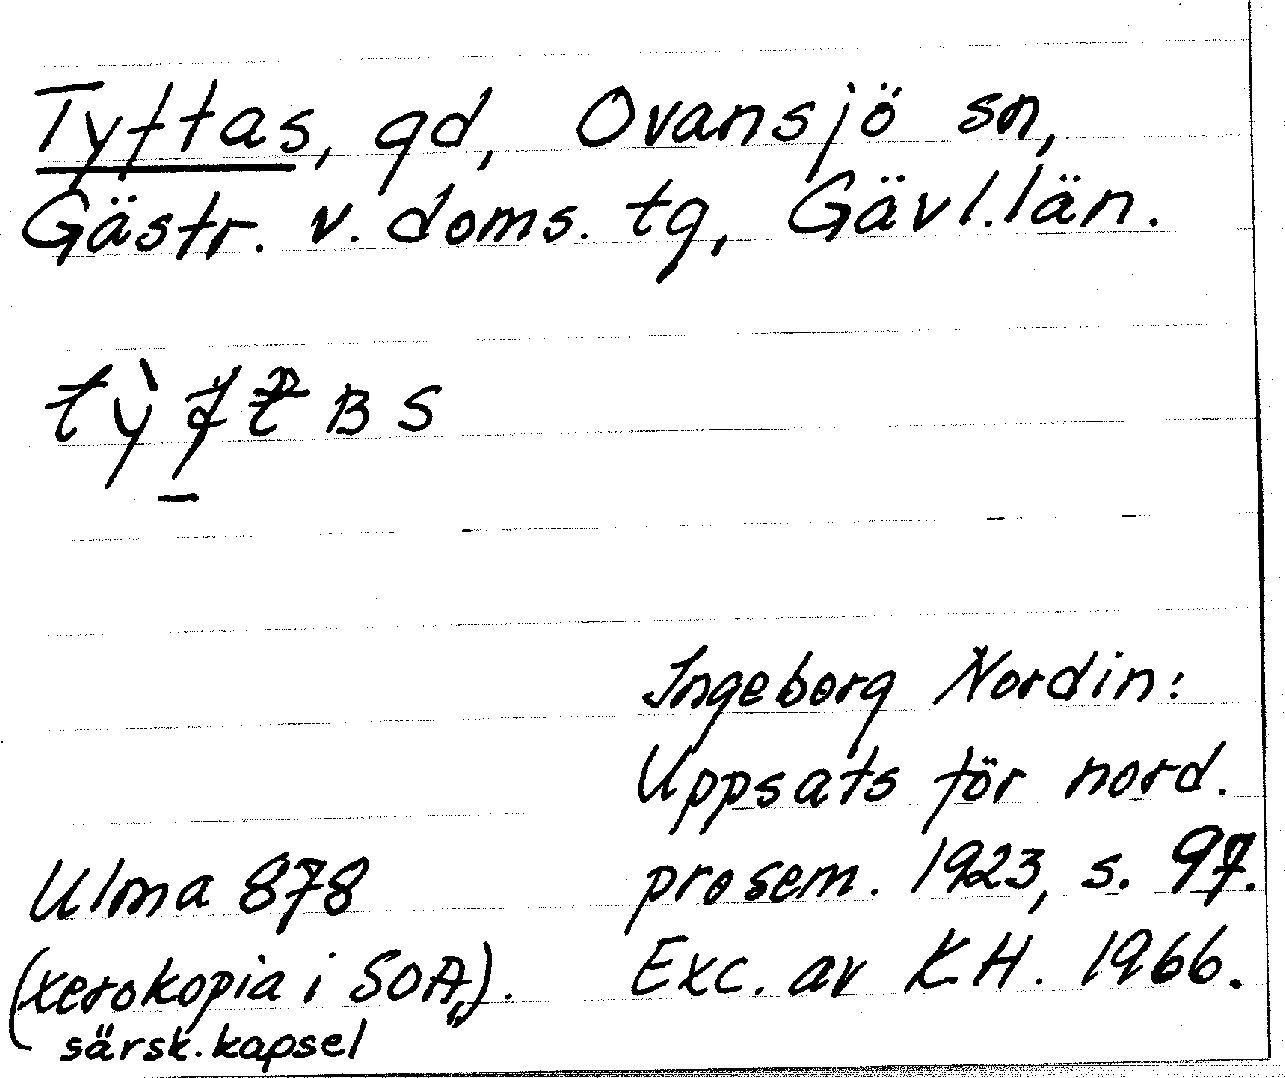 Tyftas, gd, Ovansjö sn,
Gästr. v. doms. tg, Gävl. län.
Ingeborg Nordin:
Uppsats för nord.
prosem. 1923, s. 97.
Exc. av K.H. 1966.
Ulma 878
(xerokopia i SOA,).
särsk. kapsel